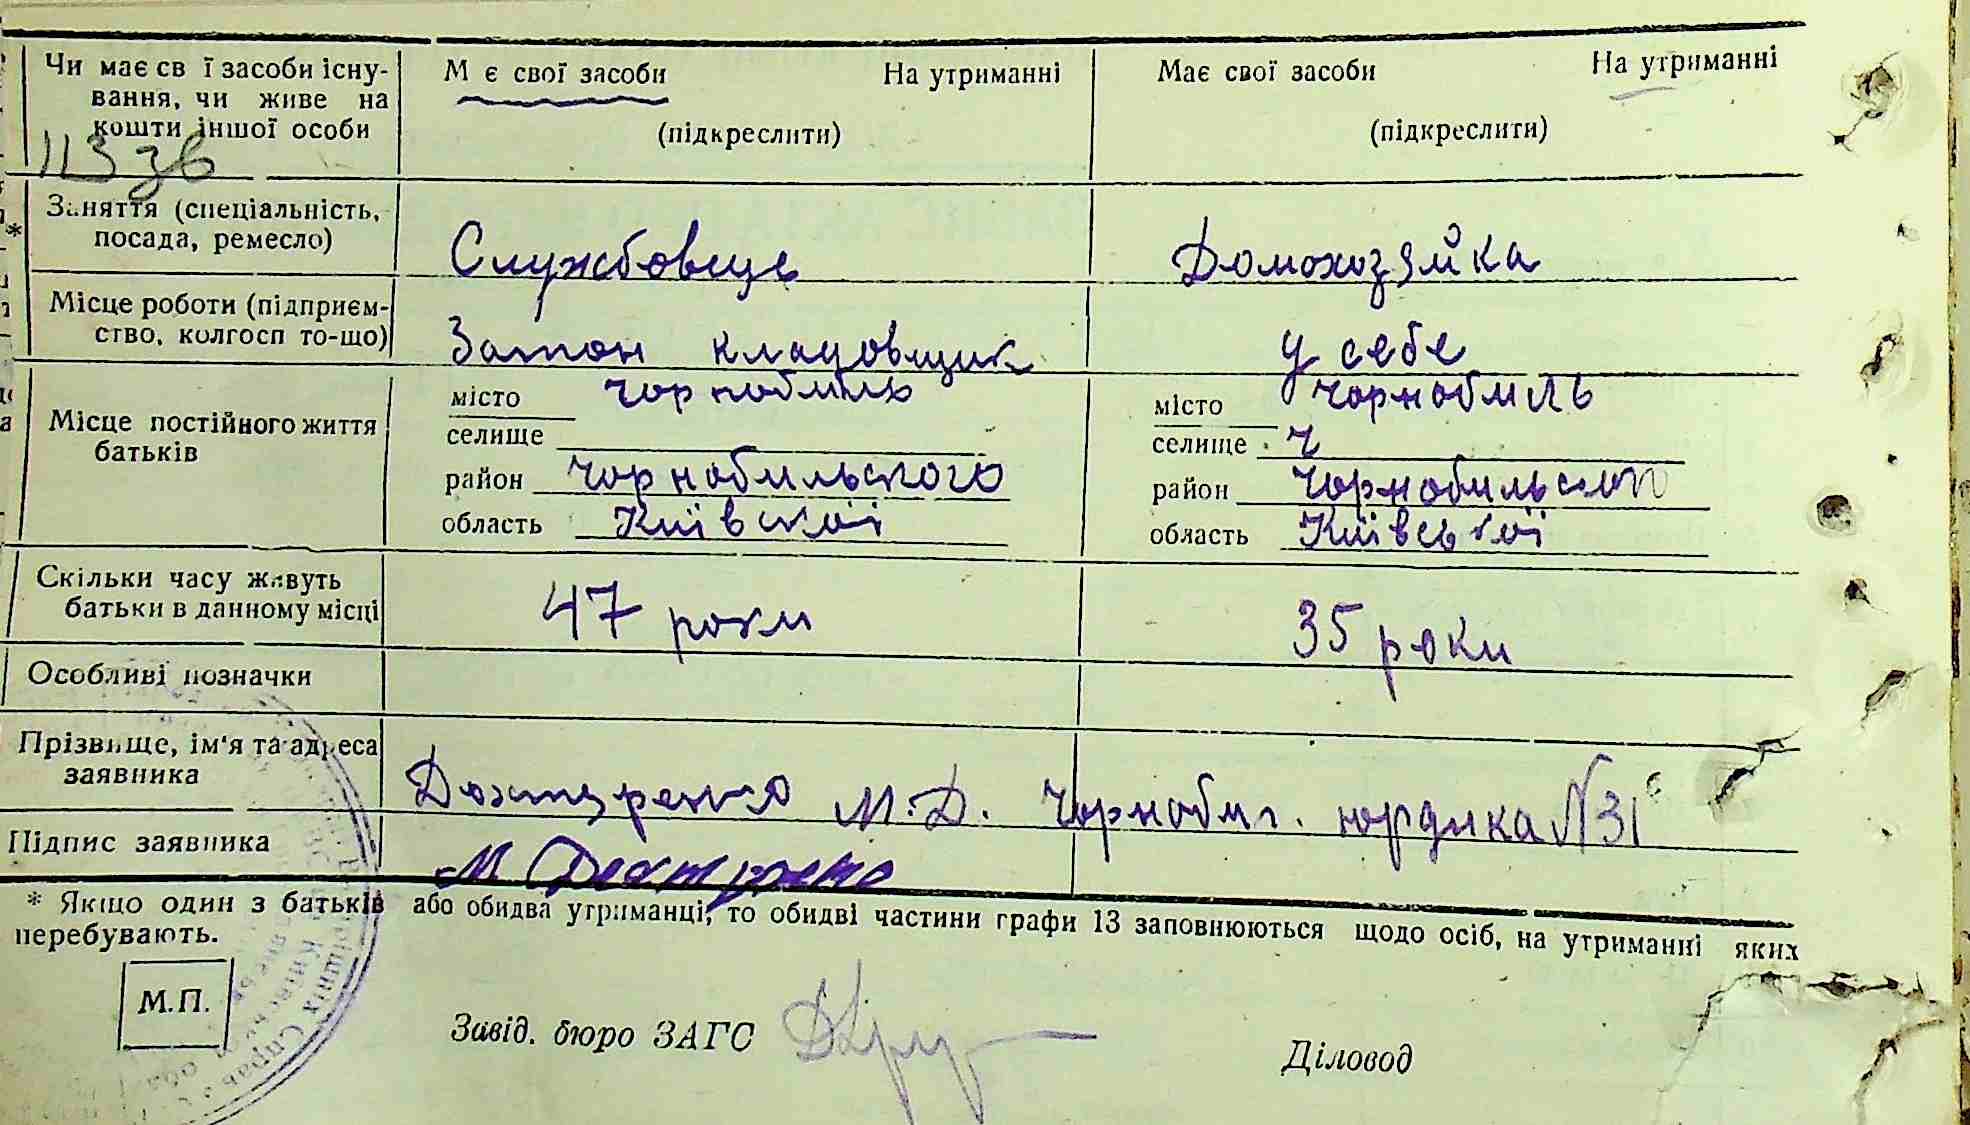 Чи має св ї засоби існу-
вання, чи живе на
кошти іншої особи
М є свої засоби На утриманні
(підкреслити)
Має свої засоби На утриманні
(підкреслити)
113 зв
Заняття (спеціальність,
посада, ремесло)
Службовець
Домохозяйка
Місце роботи (підприєм-
ство, колгосп то-що)
Затон кладовщик
у себе
Місце постійного життя
батьків
місто Чорнобиль
селище
район Чорнобильського
область Київскої
місто Чорнобиль
селище Ч
район Чорнобильського
область Київської
Скільки часу живуть
батьки в данному місці
47 роки
35 роки
Особливі позначки
Прізвище, ім'я та адреса
заявника
М.Д. Чорнобиль. юрдика N 31
Підпис заявника
М
* Якщо один з батьків або обидва утриманці, то обидві частини графи 13 заповнюються щодо осіб, на утриманні яких
перебувають.
М.П.
Завід. бюро ЗАГС
Діловод